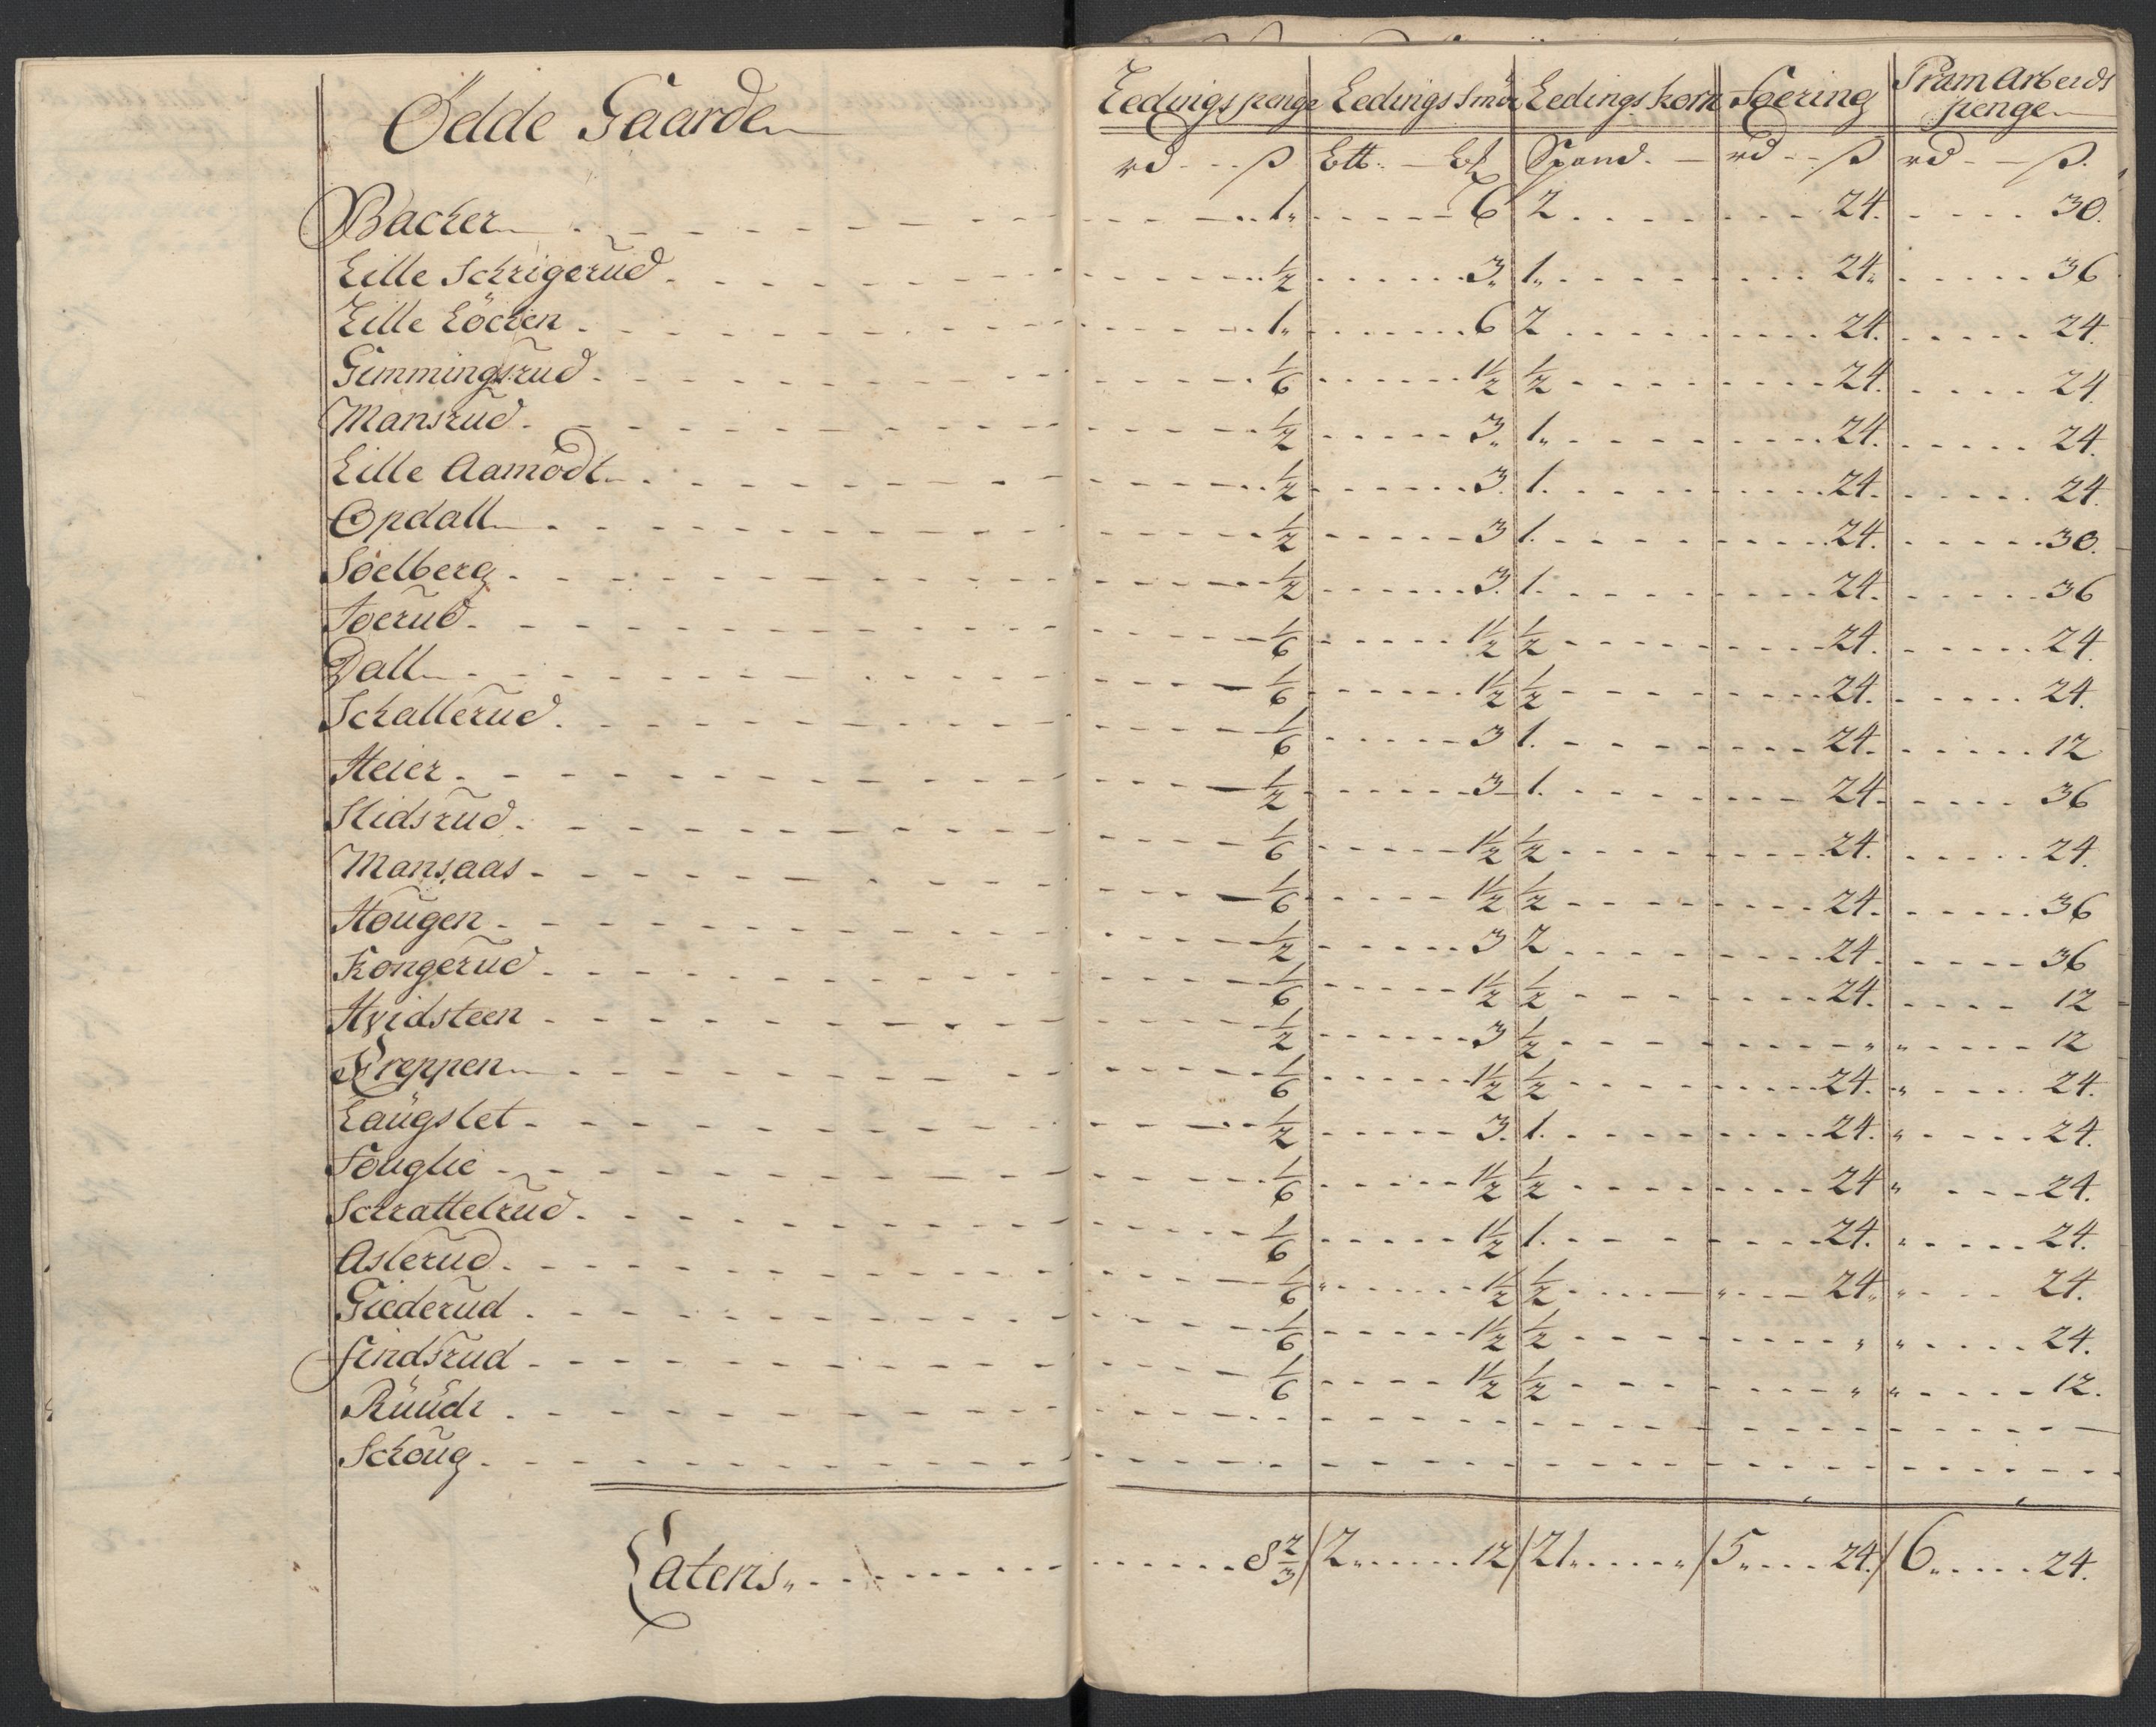 Ödde Gaarde
Ledings penge Ledings Smör Ledings korn Foering Pram Arbeids
penge
rd - - ß Ltt. - Lƶ Spand. - rd - - ß rd - - ß.
Backer 1. 6 2 24. 30.
Lille Schrigerud ½ 3. 1. 24. 36
Lille Löcken 1. 6 2 24. 24.
Gimmingsrud 1/6 1½ ½ 24. 24
Mansrud ½ 3. 1. 24. 24.
Lille Aamodt ½ 3. 1. 24. 24
Opdall ½ 3 1. 24. 30.
Soelberg ½ 3. 1. 24. 36
Toerud 1/6 1½ ½ 24. 24.
Dall 1/6 1½ ½ 24. 24.
Schallerud 1/6 3 1. 24. 12
Heier ½ 3 1. 24. 36
Slidsrud 1/6 1½ ½ 24. 24.
Mansaas 1/6 1½ ½ 24. 36
Hougen ½ 3 2 24. 36
Kongerud 1/6 1½ ½ 24. 12
Hvidsteen ½ 3 ½ " " 12
Kreppen 1/6 1½ ½ 24. " 24.
Laugslet ½ 3. 1. 24. " 24.
Fouglie 1/6 1½ ½ 24 " 24.
Schrattelrud 1/6 1½ 1. 24. " 24.
Aslerud 1/6 " 1½ ½ " 24. " 24.
Giederud 1/6 1½ ½ " " 24.
findsrud 1/6 1½ ½ " " 12.
Ruude
Schoug
Lateris 8⅔ / 2. 12 / 21. " / 5. 24. / 6. 24.